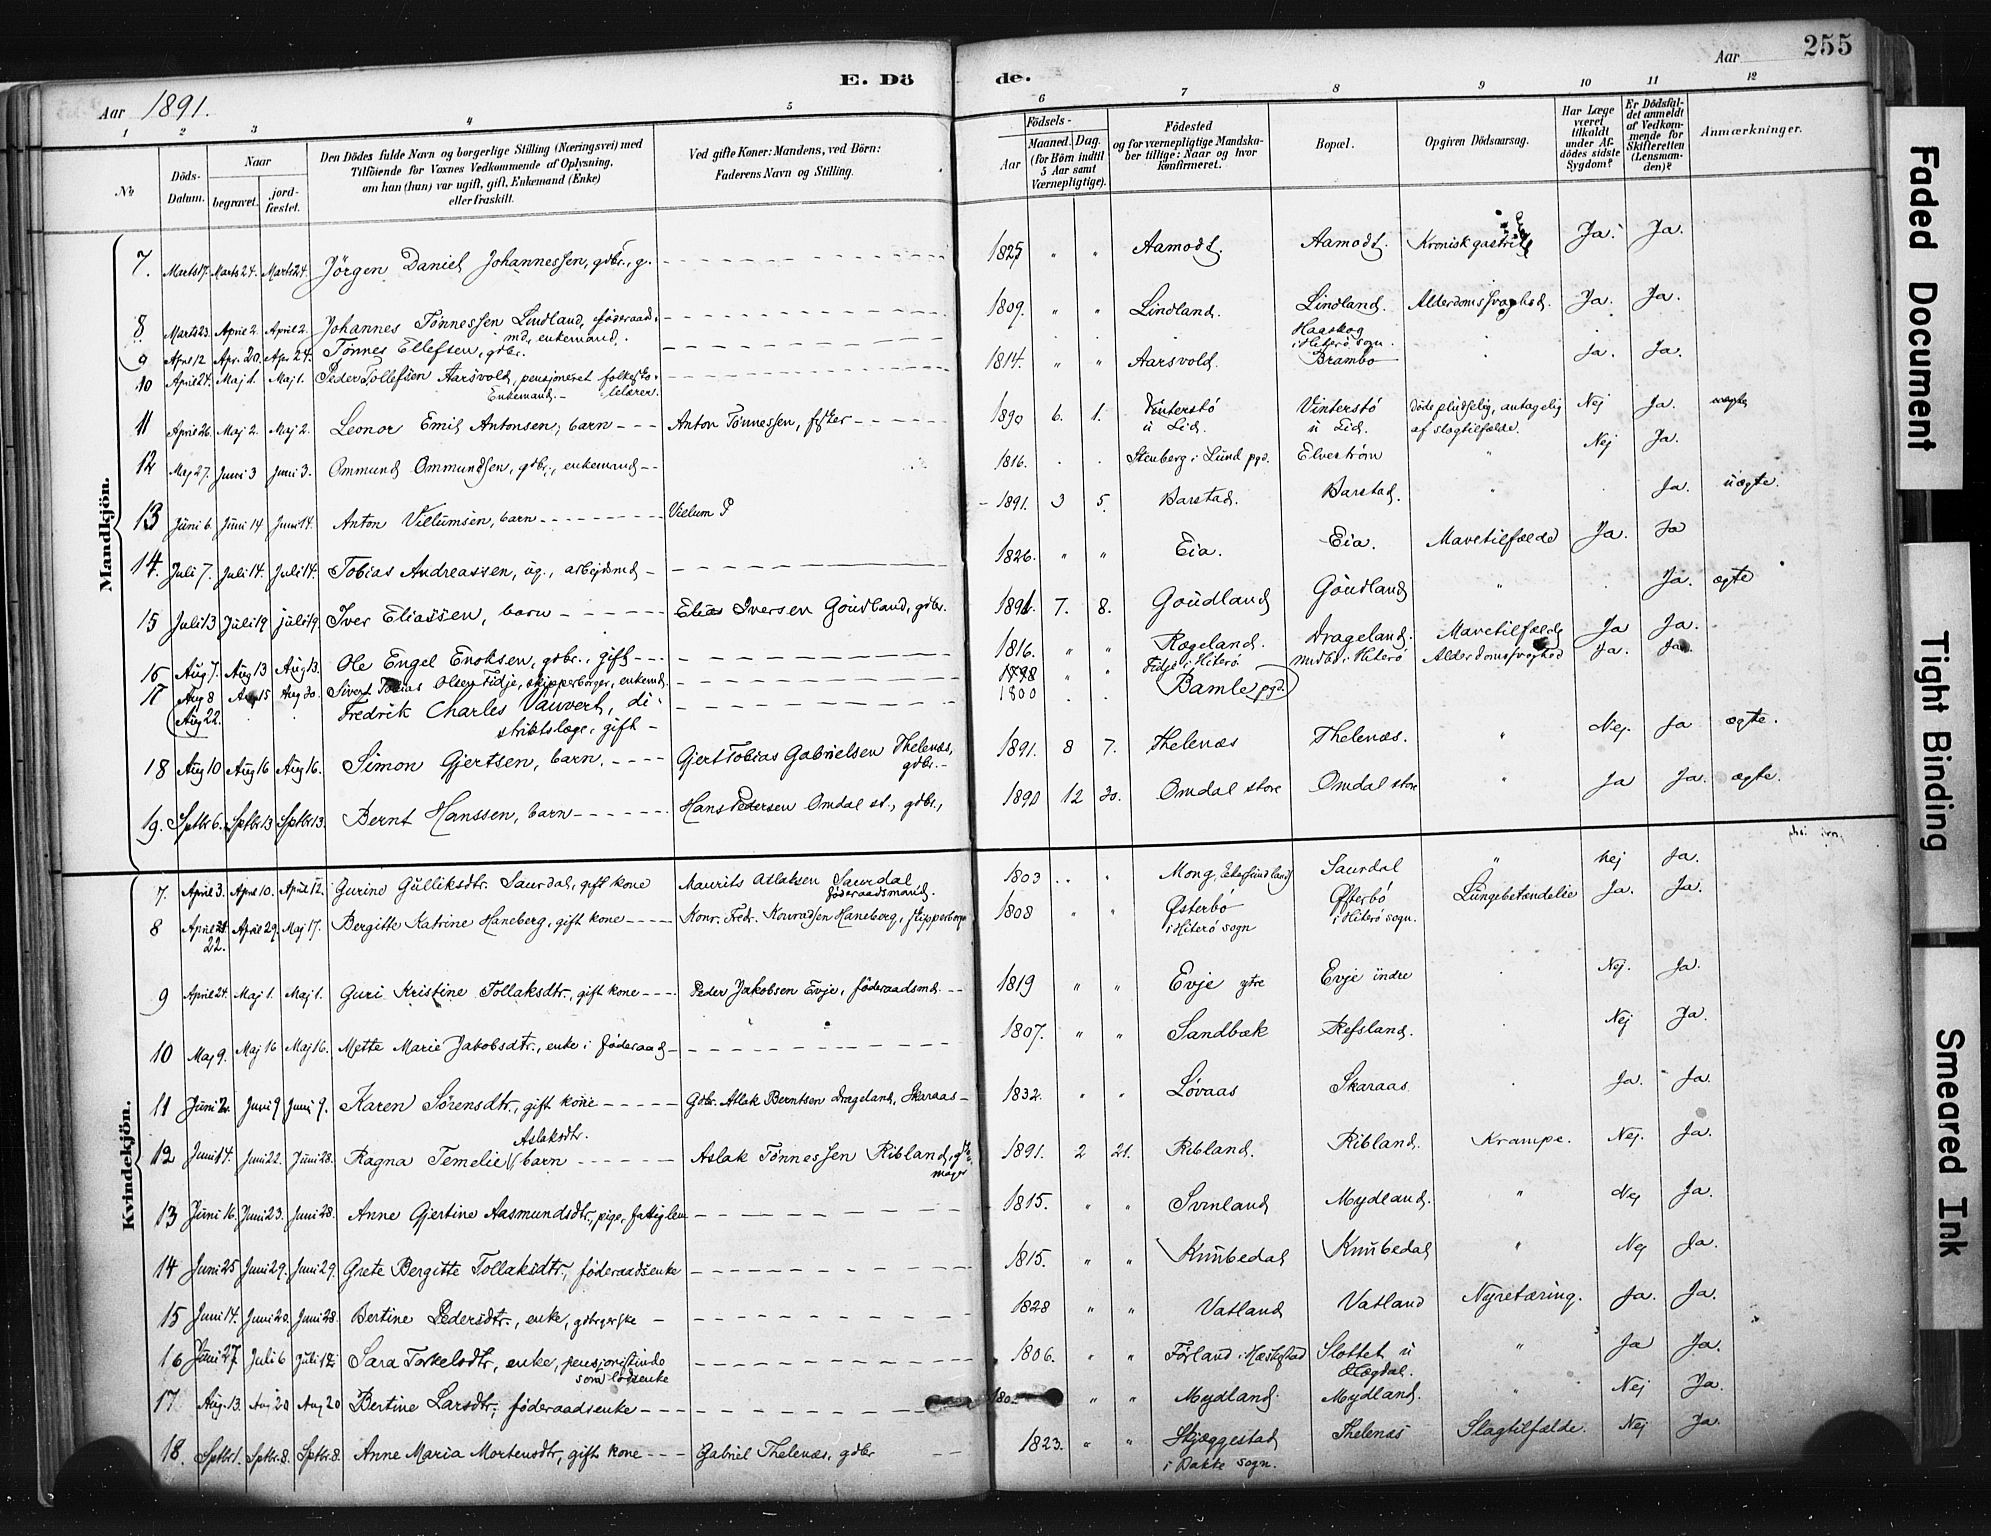 255
E. Dö de.
Aar 1891. Aar
1 2 3 4 5 6 7 8 9 10 11 12
No Döds-Datum. Naar begravet. jord-fæstet. Den Dödes fulde Navn og borgerlige Stilling (Næringsvei) med Tilföiende for Voxnes Vedkommende af Oplysning, om han (hun) var ugift, gift, Enkemand (Enke) eller fraskilt. Ved gifte Koner: Mandens, ved Börn: Faderens Navn og Stilling. Födsels- Aar Maaned. Dag. (for Börn indtil 5 Aar samt Værnepligtige). Födested og for værnepligtige Mandskaber tillige: Naar og hvor konfirmeret. Bopæl. Opgiven Dödsaarsag. Har Læge været tilkaldt under Afdödes sidste Sygdom? Er Dödsfaldet anmeldt af Vedkommende for Skifteretten (Lensmanden)? Anmærkninger.
Mandkjön.
7. Marts 17. Marts 24. Marts 24. Jörgen Daniel Johannessen, gdbr., g. 1825 " " Aamodt. Aamodt. Kronisk gastrit Ja. Ja.
8 Marts 23. April 2. April 2. Johannes Tönnessen Lindland, föderaadsmd, enkemand. 1809. " " Lindland. Lindland. Alderdomssvaghed. Ja. Ja.
9 April 12 Apr. 20. Apr. 24. Tönnes Ellefsen, gdbr. Haaskog i Hiterö sogn.
10 April 24. Maj 1. Maj 1. Peder Tollefsen Aarsvold, pensjoneret folkeskolelærer. Enkemand. 1814. " " Aarsvold. Brambo Ja. Ja.
11 April 26. Maj 2. Maj 2. Leonor Emil Antonsen, barn Anton Tönnessen, fisker 1890 6. 1. Vinterstö u Eid. Vinterstö u Eid. döde pludselig, antagelig af slagtilfælde. Nej Ja. uægte
12 Maj 27. Juni 3 Juni 3. Ommund Ommundsen, gdbr., enkemand 1816. Stenberg i Lund pgd. Elveström " Nej Ja.
13 Juni 6. Juni 14 Juni 14. Anton Villumsen, barn Vielum P 1891. 3 5. Barstad. Barstad. " Ja. uægte.
14. Juli 7. Juli 14. Juli 14. Tobias Andreassen, ug., arbejdsmd 1826. " " Eia. Eia. Mavetilfælde Ja. Ja
15 Juli 13 Juli 19 juli 19. Iver Eliassen, barn Elias Iversen Goudland, gdbr. 1891. 7. 8. Goudland Goudland " Ja. ægte
16 Aug 7. Aug 13 Aug 13. Ole Engel Enoksen, gdbr., gift 1816. " " Rægeland. Drageland. Mavetilfælde Ja Ja.
17 Aug 8 Aug 15 Aug 30. Sivert Tobias Olsen Tidje, skipperborger, enkemd. 1798 " " Tidje i Hiterö Midbö i Hiterö Alderdomssvaghed Ja. Ja.
(Aug 22. Fredrik Charles Vauvert, distriktslæge, gift 1800 Bamle pgd.)
18 Aug 10 Aug 16 Aug 16. Simon Gjertsen, barn. Gjert Tobias Gabrielsen Thelenæs, gdbr. 1891. 8 7. Thelenæs Thelenæs. " Nej. Ja ægte.
19. Sptbr 6. Sptbr 13 Sptbr 13. Bernt Hanssen, barn Hans Pedersen Omdal st., gdbr., 1890 12 30. Omdal store Omdal store " Ja Ja. ægte.
Kvindekjön.
7. April 3. April 10. April 12. Gurine Gulliksdtr. Saurdal, gift kone Maurits Atlaksen Saurdal föderaadsmand. 1803 " Mong, Saurdal " nej Ja.
8 April 22. April 29. Maj 17. Bergitte Katrine Haneberg, gift kone Konr. Fredr. Konradsen Haneberg, skipperborger 1808 " " Østerbö i Hiterö sogn Østerbö i Hiterö sogn. Lungebetændelse Ja. Ja.
9 April 24. Maj 1. Maj 1. Guri Kristine Tollaksdtr., gift kone Peder Jakobsen Evje, föderaadsmd. 1819 " " Evje ytre Evje indre Nej. Ja.
10 Maj 9. Maj 16 Maj 16. Mette Marie Jakobsdtr., enke i föderaad 1807. " " Sandbæk Refsland. Nej Ja.
11 Juni 2. Juni 9 Juni 9. Karen Sörensdtr., gift kone Gdbr. Atlak Berntsen Drageland, Skaraas 1832. " " Lövaas Skaraas. Ja. Ja.
12 Juni 14. Juni 22. Juni 28. Ragna Temelie Aslaksdtr. barn Aslak Tönnessen Ribland, 1891. 2 21. Ribland. Ribland. Krampe. Nej. Ja.
13 Juni 16. Juni 23. Juni 28. Anne Gjertine Aasmundsdtr., pige, fattiglem 1815. " " Svinland Mydland. " Nej Ja.
14 Juni 25 Juni 29. Juni 29. Grete Bergitte Tollaksdtr., föderaadsenke 1815. " " Knubedal Knubedal " Nej Ja.
15 Juni 14. Juni 20. Juni 28. Bertine Pedersdtr., enke, gdbrgerske 1828 " " Vatland Vatland Nyretæring. Ja. Ja.
16 Juni 27. Juli 6 Juli 12. Sara Torkelsdtr, enke, pensjonistinde som lodsenke 1806. " " Förland i Hæskestad Slottet u Hægdal. " Ja Ja.
17. Aug. 13. Aug 20 Aug 20 Bertine Larsdtr., föderaadsenke 180 " " Mydland. Mydland. " Nej Ja.
18. Sptbr 1. Sptbr 8. Sptbr 8. Anne Maria Mortensdtr, gift kone Gabriel Thelenæs, gdbr 1823. " " Skjæggestad i Bakke sogn. Thelenæs Slagtilfælde. Nej Ja.
Faded Document
Tight Binding
Smeared Ink